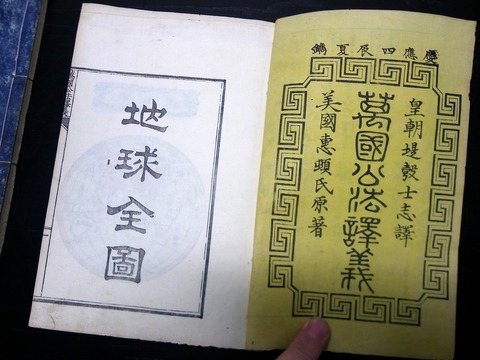 慶應四辰夏鐫
皇朝堤殼士志譯
萬國公法譯義
美國惠頓氏原著
地球全圖